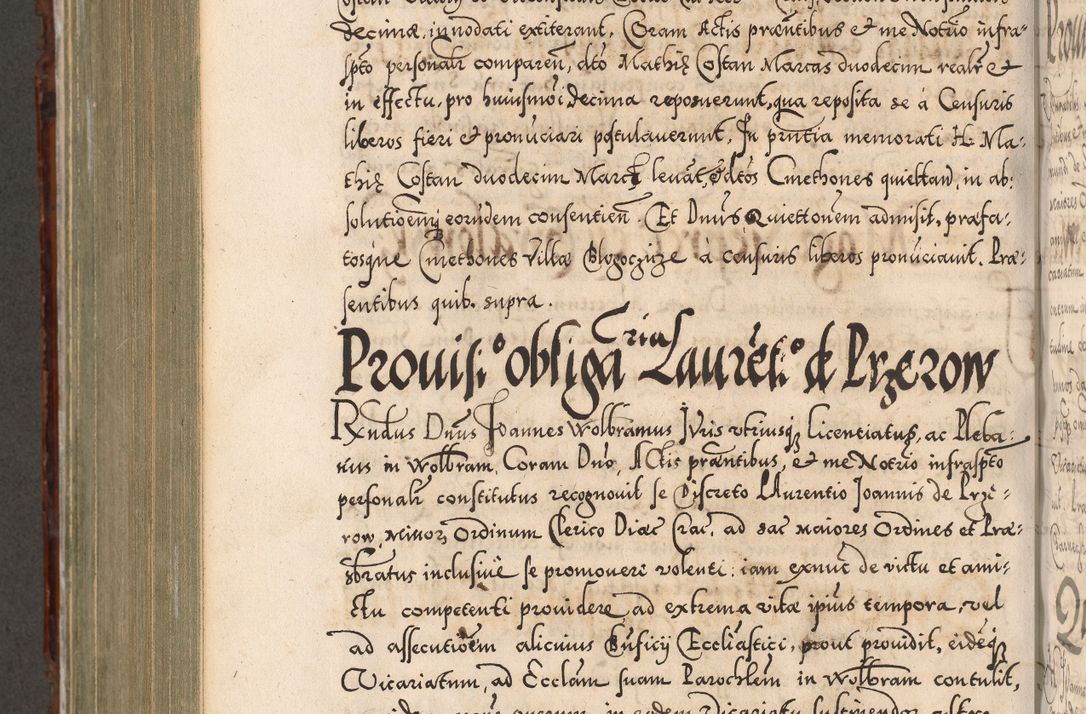 decimæ, innodati extiterant, Coram Actis præntibus et me Notrio infra-
spto personalr comparen, dto Mathiæ Costan Marcas duodecim realr et
in effectu, pro huiusmoi decima reposuerunt, qua reposita se á Censuris
liberos fieri et pronuciari postulaverunt, In pruntia memorati H. Ma-
thiæ Costan duodecim Marcas levat, et dtos Cmethones quiettan, in ab:
solutioem eorudem consentien. Et Dnus Quiettonem admisit, præfa-
tosque Cmethones Villæ à censuris liberos pronuciavit. Præ-
sentibus quib. supra.
Provisi.o obligaria Laureti.o de Przerow
Rndus Dnus Joannes Wolbramus Juris utriusq Licenciatus, ac Pleba-
nus in Wolbram, Coram Dno, Actis præntibus, et me Notrio infraspto
personalr constitutus recognovit se Discreto Laurentio Joannis de Prze-
row, Minor Ordinum Clerico Diæc Crac, ad sac maiores Ordines et Præ-
sbratus inclusive se promovere volenti: iam exnuc de victu et ami-
ctu competenti providere ad extrema vitæ ipius tempora, vel
ad assecutioem alicuius Bnficij Eccliastici, prout providit, eideq
Vicariatum, ad Ecclam suam Parochlem in Wolbram contulit,